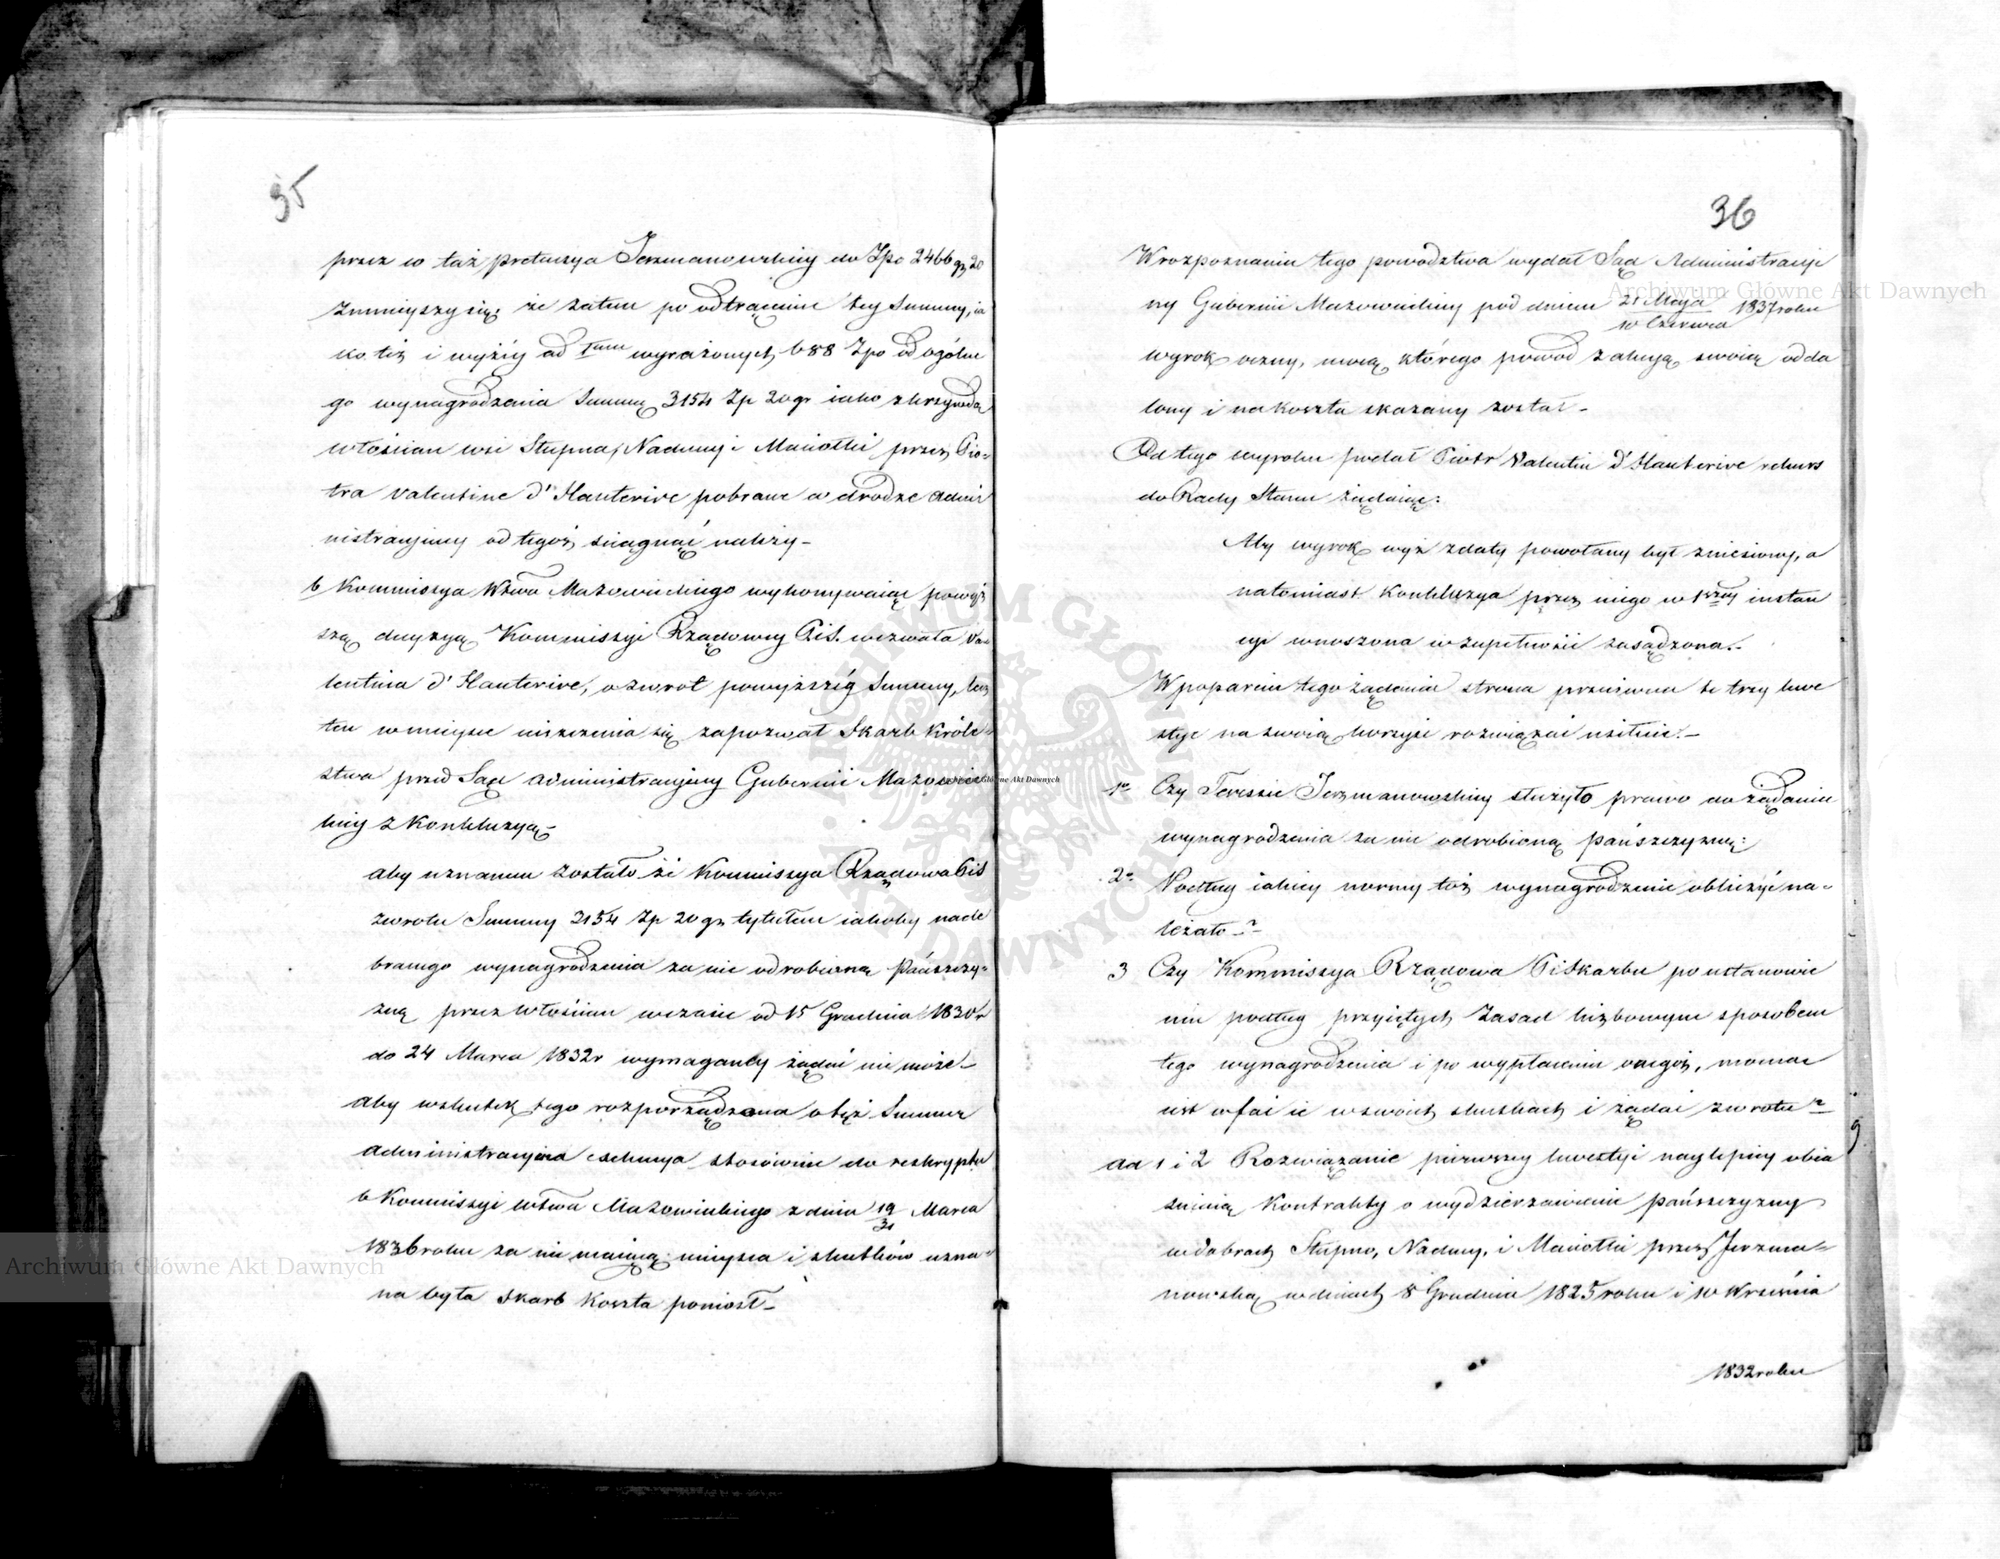 35
przez co taż pretensya Jerzmanowskiey do Zpo 2466 gr 20
zmnieyszy się; że zatem po odtrąceniu tey Summy, ia
ko też i wyżéy ad 1mum wyrażonych 688 Zpo od ogólne
go wynagrodzenia Summę 3154 Zp 20 gr iako z krzywdą
włościan wsi Stupna, Nadmy i Maciołki przez Pio-
tra Valentine d'Hauterive pobrane w drodze admi
nistracyiney od tegoż sciągnąć należy-
b Kommissya Wztwa Mazowieckiego wykonywaiąc powyż
szą decyzyą Kommissyi Rządowey P i S. wezwała Va-
lentina d'Hauterive, o zwrot powyższéy Summy, lecz
ten w mieysce uiszczenia się zapozwał Skarb Króle-
stwa przed Sąd administracyjny Gubernii Mazowiec
kiey z Konkluzyą-
aby uznanem zostało że Kommissya Rządowa P i S
zwrotu Summy 3154 Zp 20 gr tytułem iakoby nade
branego wynagrodzenia za nie odrobioną Pańszczy-
znę przez włościan w czasie od 15 Grudnia 1830 r
do 24 Marca 1832 r wymagany żądać nie może-
aby wskutek tego rozporządzona o też Summę
administracyina exekucya stosownie do reskryptu
b Kommissyi wztwa Mazowieckiego z dnia 19/31 Marca
1836 roku za nie maiącą mieysca i skutków uzna-
na była Skarb koszta poniósł-
36
W rozpoznaniu tego powództwa wydał Sąd Administracyi
ny Gubernii Mazowieckiey pod dniem 21 Maja/10 Czerwca 1837 roku
wyrok oczny, mocą którego powód z akcyą swoią odda
lony i na koszta skazany został-
Od tego wyroku podał Piotr Valentin d'Hauterive rekurs
do Rady Stanu żądaiąc:
Aby wyrok wyż z daty powołany był zniesiony, a
natomiast konkluzya przez niego w 1szey instan
cyi wnoszona w zupełności zasądzona.-
W poparciu tego żądania strona przeciwna te trzy kwe
stye na swoią korzyść rozwiązać usiłuie.-
1o Czy Teressie Jerzmanowskiey służyło prawo do żądania
wynagrodzenia za nie odrobioną pańszczyznę:
2o Podług iakiey normy też wynagrodzenie obliczyć na-
leżało-?
3 Czy Kommissya Rządowa P i Skarbu po ustanowie
niu podług przyiętych Zasad liczbowym sposobem
tego wynagrodzenia i po wypłaceniu onegoż, mocna
iest cofać ie w swoich skutkach i żądać zwrotu?
ad 1 i 2 Rozwiązanie pierwszey kwestyi naylepiey obia
śniaią Kontrakty o wydzierżawienie pańszczyzny
w dobrach Stupno, Nadmy, i Maciołki przez Jerzma-
nowską w dniach 8 Grudnia 1825 roku i 10 Września
1832 roku
Archiwum Główne Akt Dawnych
Archiwum Główne Akt Dawnych
Archiwum Główne Akt Dawnych
ARCHIWUM GŁÓWNE AKT DAWNYCH